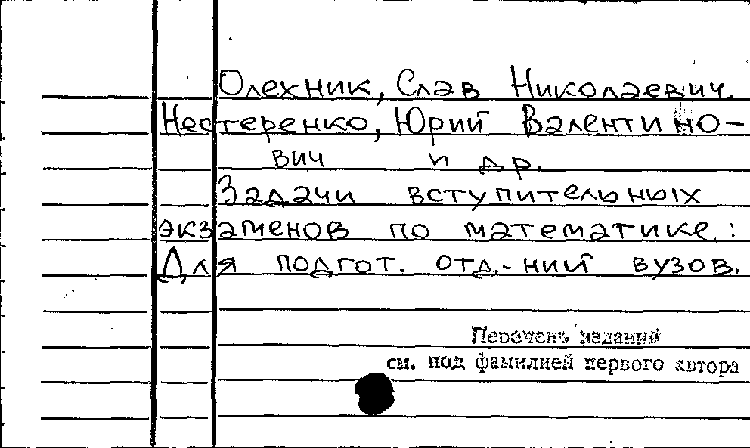 Олехник, Слав Николаевич.
Нестеренко, Юрий Валентино-
вич и др.
Задачи вступительных
экзаменов по математике.:
Для подгот. отд.-ний вузов.
Перечень изданий
см. под фамилией первого автора